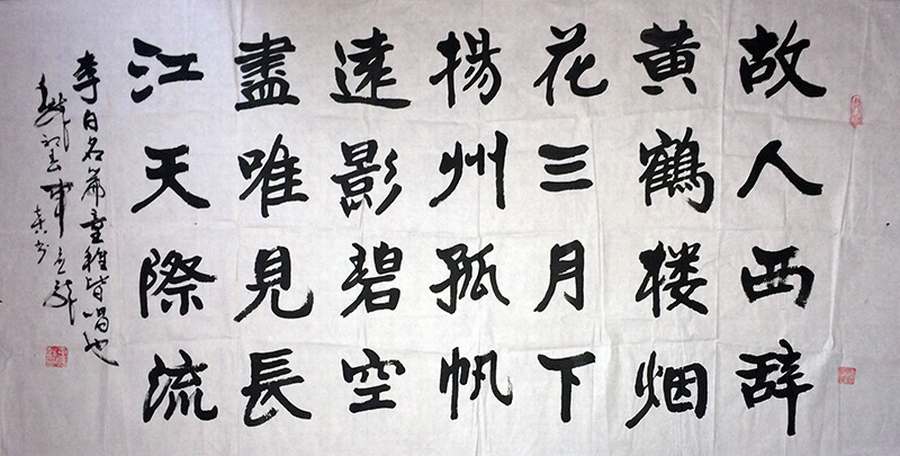 故人西辞
黄鶴楼烟
花三月下
揚州孤帆
遠影碧空
盡唯見長
江天際流
李白名篇童稚皆唱也